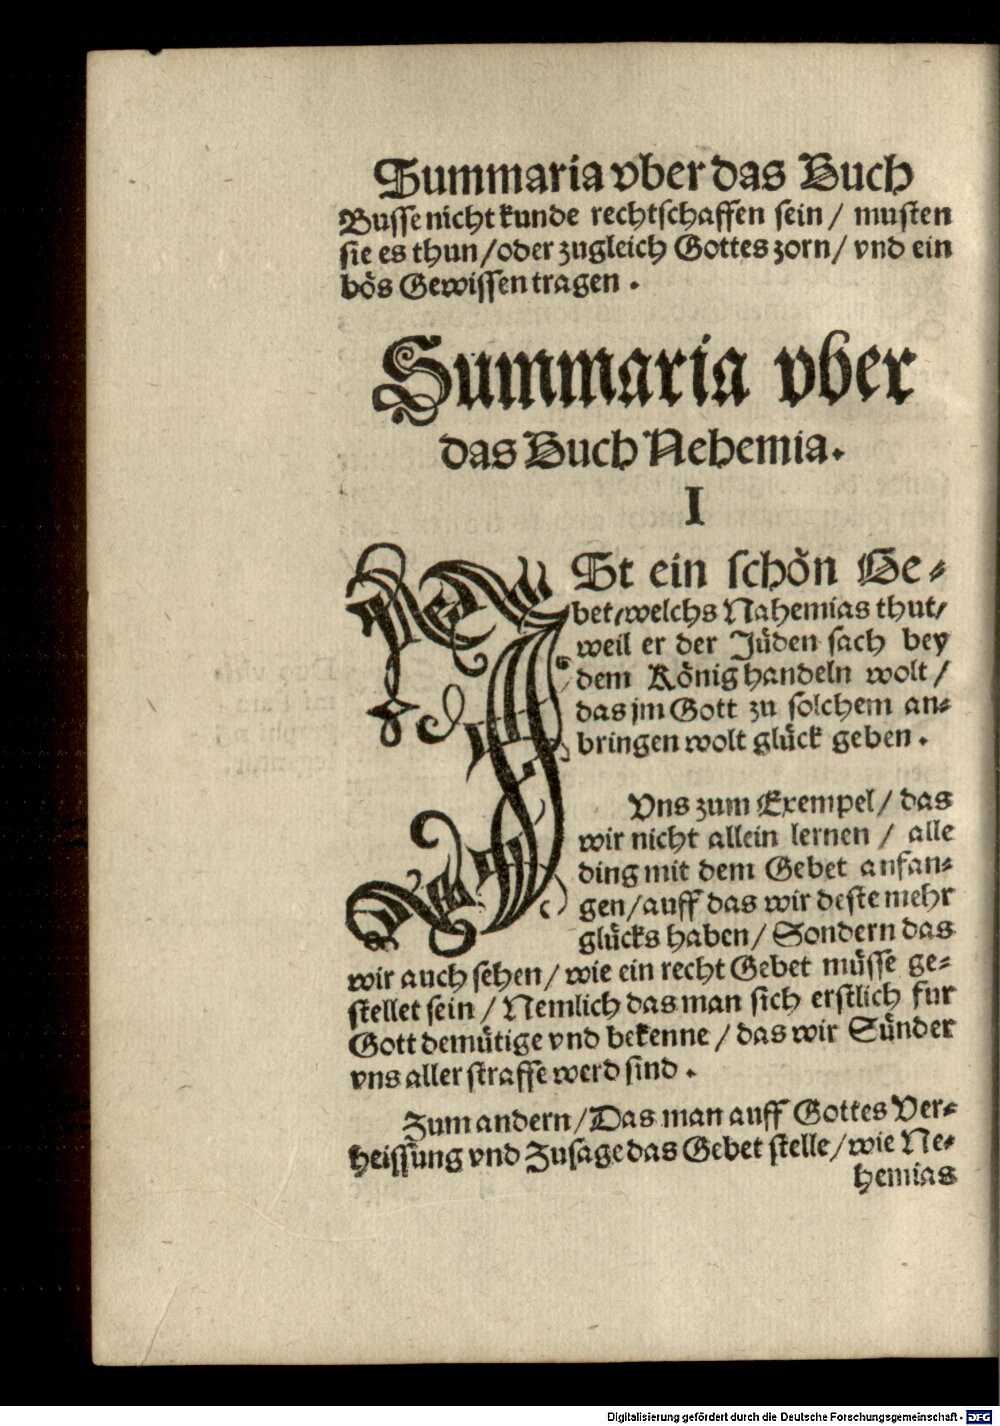 Summaria vber das Buch
Busse nicht kunde rechtschaffen sein / musten
sie es thun / oder zugleich Gottes zorn / vnd ein
bös Gewissen tragen .
Summaria vber
das Buch Nehemia.
I
JSt ein schön Ge-
bet / welchs Nahemias thut /
weil er der Jüden sach bey
dem König handeln wolt /
das jm Gott zu solchem an-
bringen wolt glück geben .
Vns zum Exempel / das
wir nicht allein lernen / alle
ding mit dem Gebet anfan-
gen / auff das wir deste mehr
glücks haben / Sondern das
wir auch sehen / wie ein recht Gebet müsse ge-
stellet sein / Nemlich das man sich erstlich fur
Gott demütige vnd bekenne / das wir Sünder
vns aller straffe werd sind .
Zum andern / Das man auff Gottes Ver-
heissung vnd Zusage das Gebet stelle / wie Ne-
hemias
Digitalisierung gefördert durch die Deutsche Forschungsgemeinschaft - DFG